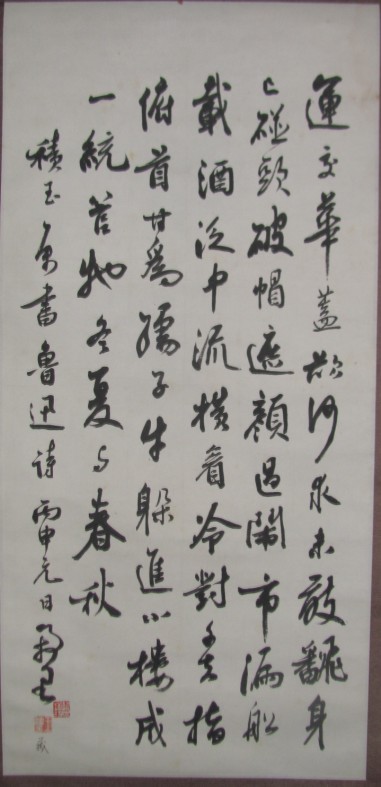 運交華蓋欲何求未敢飜身
已碰頭破帽遮顏過鬧市漏船
載酒泛中流横眉冷對千夫指
俯首甘爲孺子牛躲進小樓成
一統管牠冬夏与春秋
積玉 書魯迅詩丙申元日